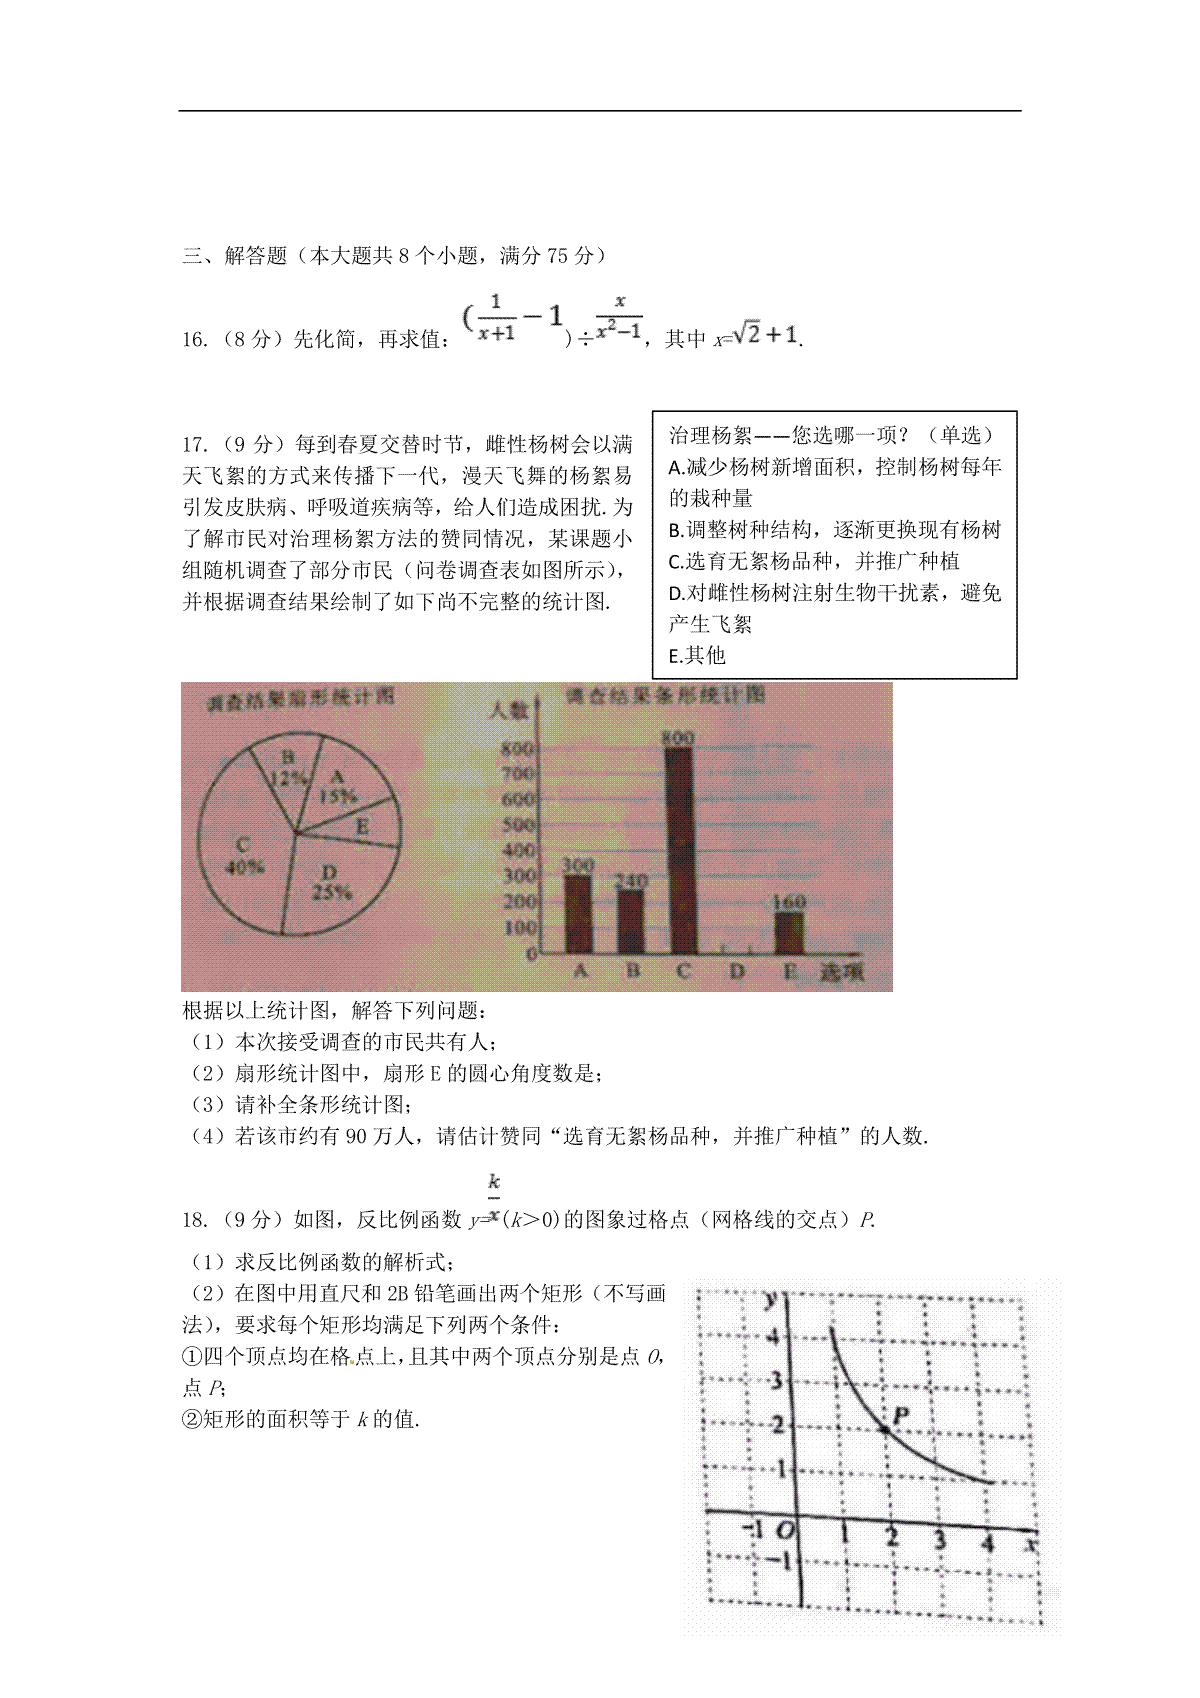 三、解答题（本大题共 8 个小题，满分 75 分）
16.（8 分）先化简，再求值：(\frac{1}{x+1}-1)÷\frac{x}{x^2-1}，其中 x=\sqrt{2}+1.
17.（9 分）每到春夏交替时节，雌性杨树会以满
天飞絮的方式来传播下一代，漫天飞舞的杨絮易
引发皮肤病、呼吸道疾病等，给人们造成困扰.为
了解市民对治理杨絮方法的赞同情况，某课题小
组随机调查了部分市民（问卷调查表如图所示），
并根据调查结果绘制了如下尚不完整的统计图.
治理杨絮——您选哪一项？（单选）
A.减少杨树新增面积，控制杨树每年
的栽种量
B.调整树种结构，逐渐更换现有杨树
C.选育无絮杨品种，并推广种植
D.对雌性杨树注射生物干扰素，避免
产生飞絮
E.其他
调查结果扇形统计图
B
12%
A
15%
E
C
40%
D
25%
调查结果条形统计图
人数
800
700
600
500
400
300
200
100
0
300
240
800
160
A B C D E 选项
根据以上统计图，解答下列问题：
（1）本次接受调查的市民共有人；
（2）扇形统计图中，扇形 E 的圆心角度数是；
（3）请补全条形统计图；
（4）若该市约有 90 万人，请估计赞同“选育无絮杨品种，并推广种植”的人数.
18.（9 分）如图，反比例函数 y=\frac{k}{x}(k＞0)的图象过格点（网格线的交点）P.
（1）求反比例函数的解析式；
（2）在图中用直尺和 2B 铅笔画出两个矩形（不写画
法），要求每个矩形均满足下列两个条件：
①四个顶点均在格点上，且其中两个顶点分别是点 O，
点 P；
②矩形的面积等于 k 的值.
y
4
3
2
P
1
-1 O 1 2 3 4 x
-1